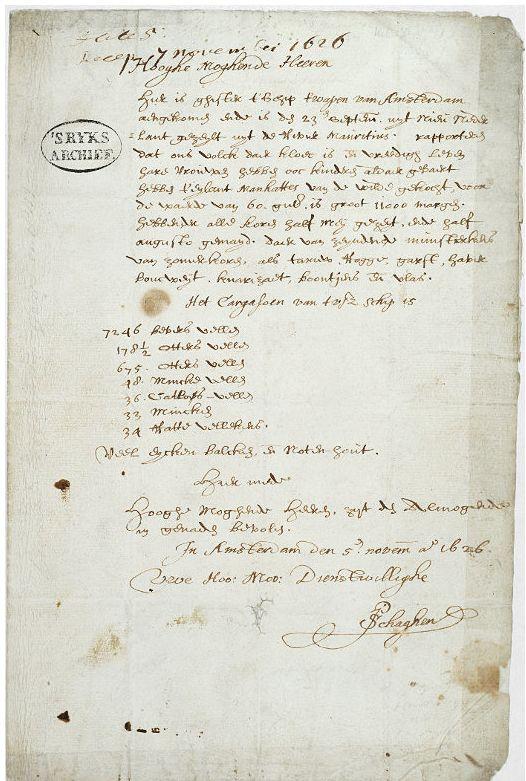 Recep. 7 Novembri 1626
Hooghe Moghende Heeren
Hier is ghister t'Schip t'wapen van Amsterdam
aengekomen ende is den 23en Septem. uyt Nieu Neder
lant gezeylt uyt de Rivier Mauritius. rapporteren
dat ons volck daer kloec is en vredigh leven
hare Vrouwen hebben ooc kinderen aldaer gebaert
hebben t'eylant Manhattes van de wilde gekocht, voor
de waerde van 60 guld. is groot 11000 morgen.
hebbende alle koren half Mey gezeyt, ende half
augusto gemaeyd. daer van zeyndende munsterkens
van zomerkoren, als tarwe, Rogge, garst, haver
boucweyt, knarizaet, boontjens en vlas.
Het Cargasoen van tvsz Schip is
7246 Bevers vellen
178½ Otters vellen
675. Otters vellen
48. Mincke vellen
36. Catloes vellen
33 Mincken
34 Ratte vellekens.
Veel eycken balcken, en Noten hout.
Hier mede
Hooghe Moghende Heeren, zyt den Almogende
in genaden bevolen.
In Amsterdam den 5en novem ao 1626
Uwe Hoo: Moo: Dienstwillighe
P Schaghen
'SRYKS
ARCHIEF.